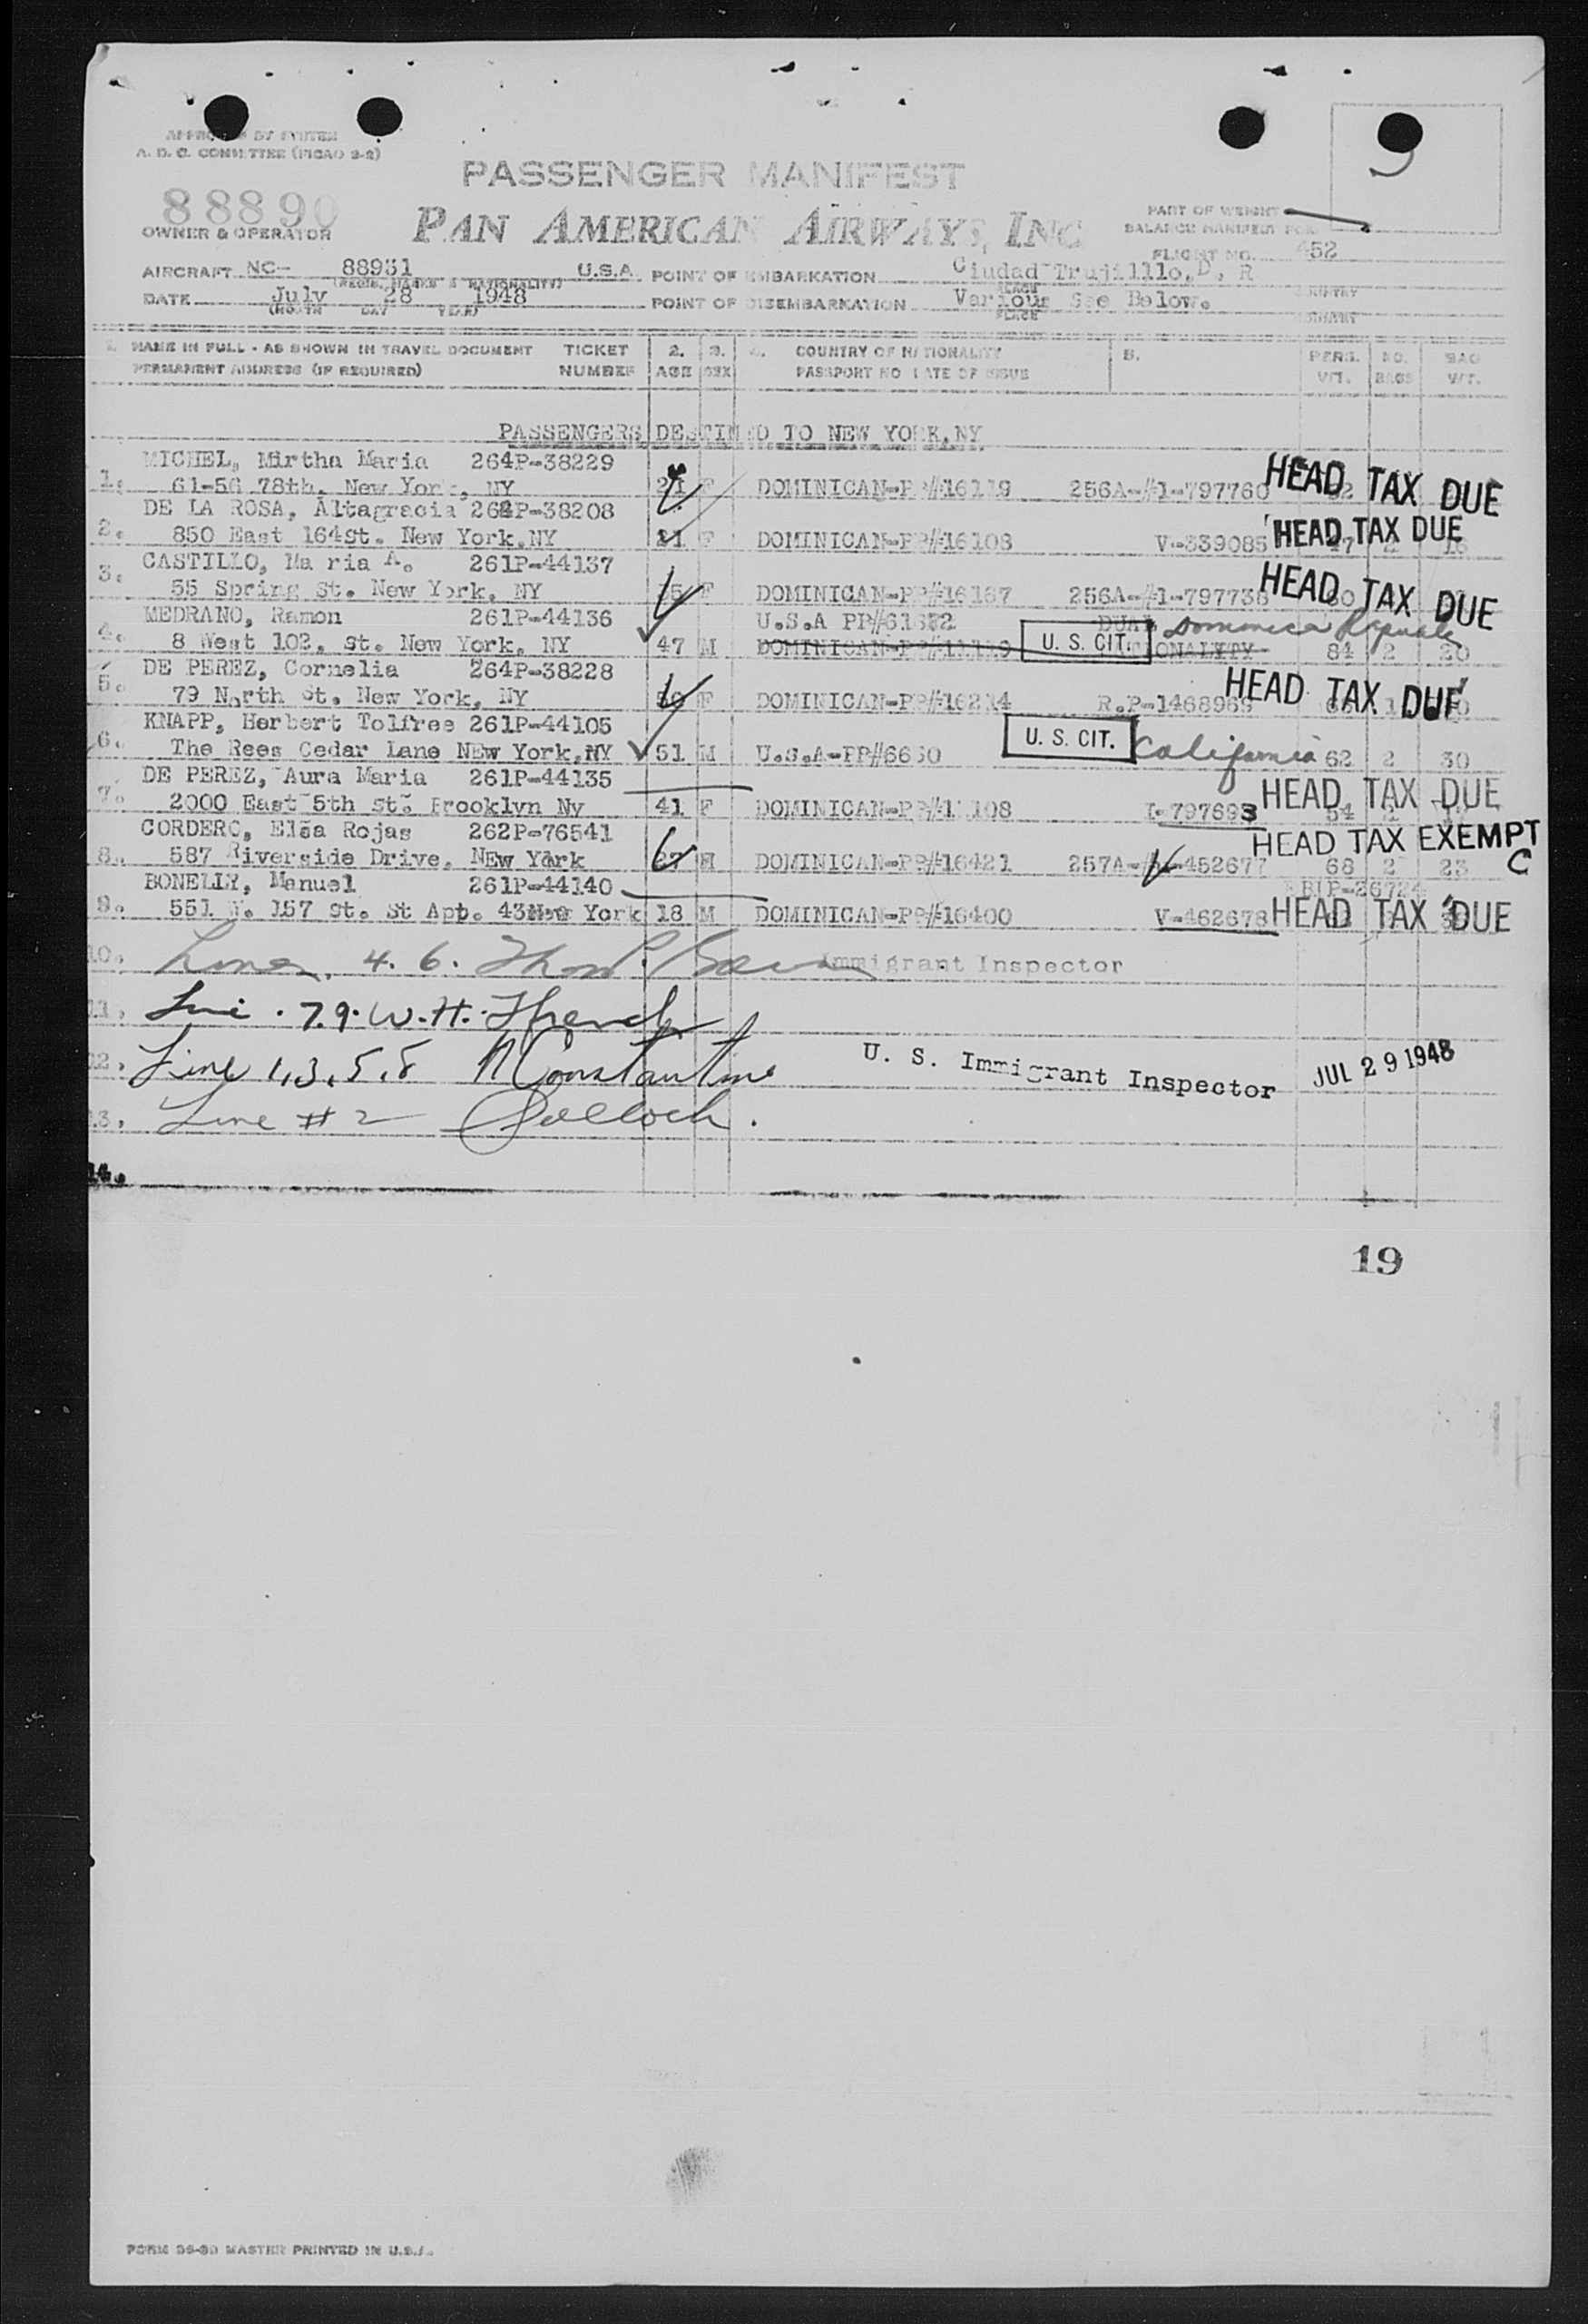 A. D. C. COMMITTEE (PICAO 2-2)
PASSENGER MANIFEST
88890
OWNER & OPERATOR
PAN AMERICAN AIRWAYS, INC
PART OF WEIGHT
BALANCE MANIFEST FOR
FLIGHT NO. 452
AIRCRAFT NC- 88931 U.S.A POINT OF EMBARKATION Ciudad Trujilllo, D, R
(REGIS. MARKS & NATIONALITY) PLACE COUNTRY
DATE July 28 1948 POINT OF DISEMBARKATION Various See Below.
(MONTH DAY YEAR) PLACE COUNTRY
1. NAME IN FULL - AS SHOWN IN TRAVEL DOCUMENT TICKET 2. 3. 4. COUNTRY OF NATIONALITY 5. PERS. NO. BAG
PERMANENT ADDRESS (IF REQUIRED) NUMBER AGE SEX PASSPORT NO DATE OF ISSUE WT. BAGS WT.
PASSENGERS DESTINED TO NEW YORK, NY
MICHEL, Mirtha Maria 264P-38229
1. 61-56 78th, New York, NY F DOMINICAN-PP#16119 256A-#1-797760 HEAD TAX DUE
DE LA ROSA, Altagracia 264P-38208
2. 850 East 164St. New York, NY F DOMINICAN-PP#16108 V-339085 HEAD TAX DUE
CASTILLO, Ma ria A. 261P-44137
3. 55 Spring St. New York, NY F DOMINICAN-PP#16167 256A-#1-797738 HEAD TAX DUE
MEDRANO, Ramon 261P-44136 U.S.A DUAL Dominican Republic
4. 8 West 102, St. New York, NY 47 M U. S. CIT. NATIONALITY 84 2 20
DE PEREZ, Cornelia 264P-38228
5. 79 North St, New York, NY F DOMINICAN-PP#16214 R.P-1468969 HEAD TAX DUE
KNAPP, Herbert Tolfree 261P-44105
6. The Rees Cedar Lane NEw York, NY 51 M U.S.A-PP#6650 U. S. CIT. California 62 2 30
DE PEREZ, Aura Maria 261P-44135
7. 2000 East 5th St. Brooklyn Ny 41 F DOMINICAN-PP#11108 I-797693 HEAD TAX DUE
CORDERO, Elsa Rojas 262P-76541 HEAD TAX EXEMPT
8. 587 Riverside Drive, NEw York DOMINICAN-PP#16421 257A- 452677 68 2 23 C
BONELLY, Manuel 261P-44140
9. 551 W. 157 St. St App. 43 New York 18 M DOMINICAN-PP#16400 V-462678 HEAD TAX DUE
10. Lines, 4. 6. Immigrant Inspector
11. Line . 7.9. W.H. French
12. Line 1,3,5,8 N Constantine U. S. Immigrant Inspector JUL 29 1948
13. Line # 2
14.
19
FORM MASTER PRINTED IN U.S.A.